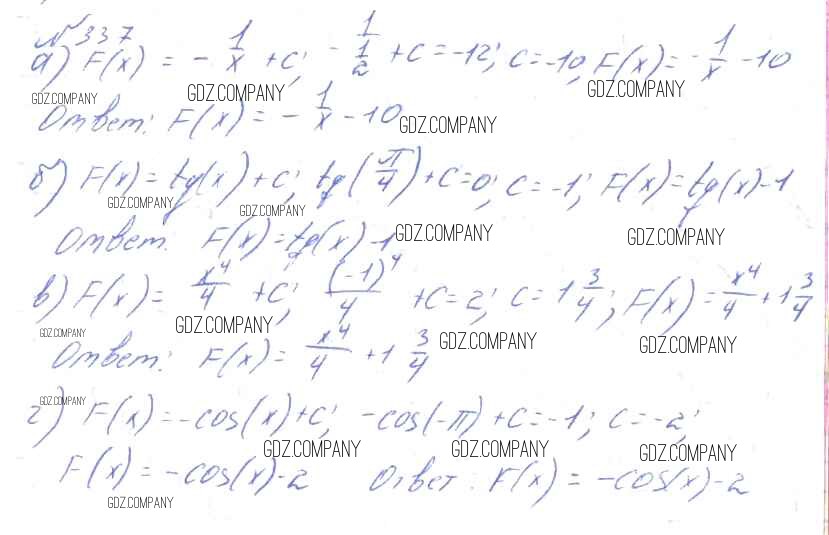 №337
а) F(x) = -1/x + C; -1/(1/2) + C = -12; C = -10; F(x) = -1/x - 10
GDZ.COMPANY GDZ.COMPANY GDZ.COMPANY
Ответ: F(x) = -1/x - 10
GDZ.COMPANY
б) F(x) = tg(x) + C; tg(π/4) + C = 0; C = -1; F(x) = tg(x) - 1
GDZ.COMPANY GDZ.COMPANY
Ответ. F(x) = tg(x) - 1
GDZ.COMPANY GDZ.COMPANY
в) F(x) = x⁴/4 + C; (-1)⁴/4 + C = 2; C = 1 3/4; F(x) = x⁴/4 + 1 3/4
GDZ.COMPANY GDZ.COMPANY GDZ.COMPANY GDZ.COMPANY
Ответ: F(x) = x⁴/4 + 1 3/4
г) F(x) = -cos(x) + C; -cos(-π) + C = -1; C = -2;
GDZ.COMPANY GDZ.COMPANY GDZ.COMPANY GDZ.COMPANY
F(x) = -cos(x) - 2 Ответ: F(x) = -cos(x) - 2
GDZ.COMPANY